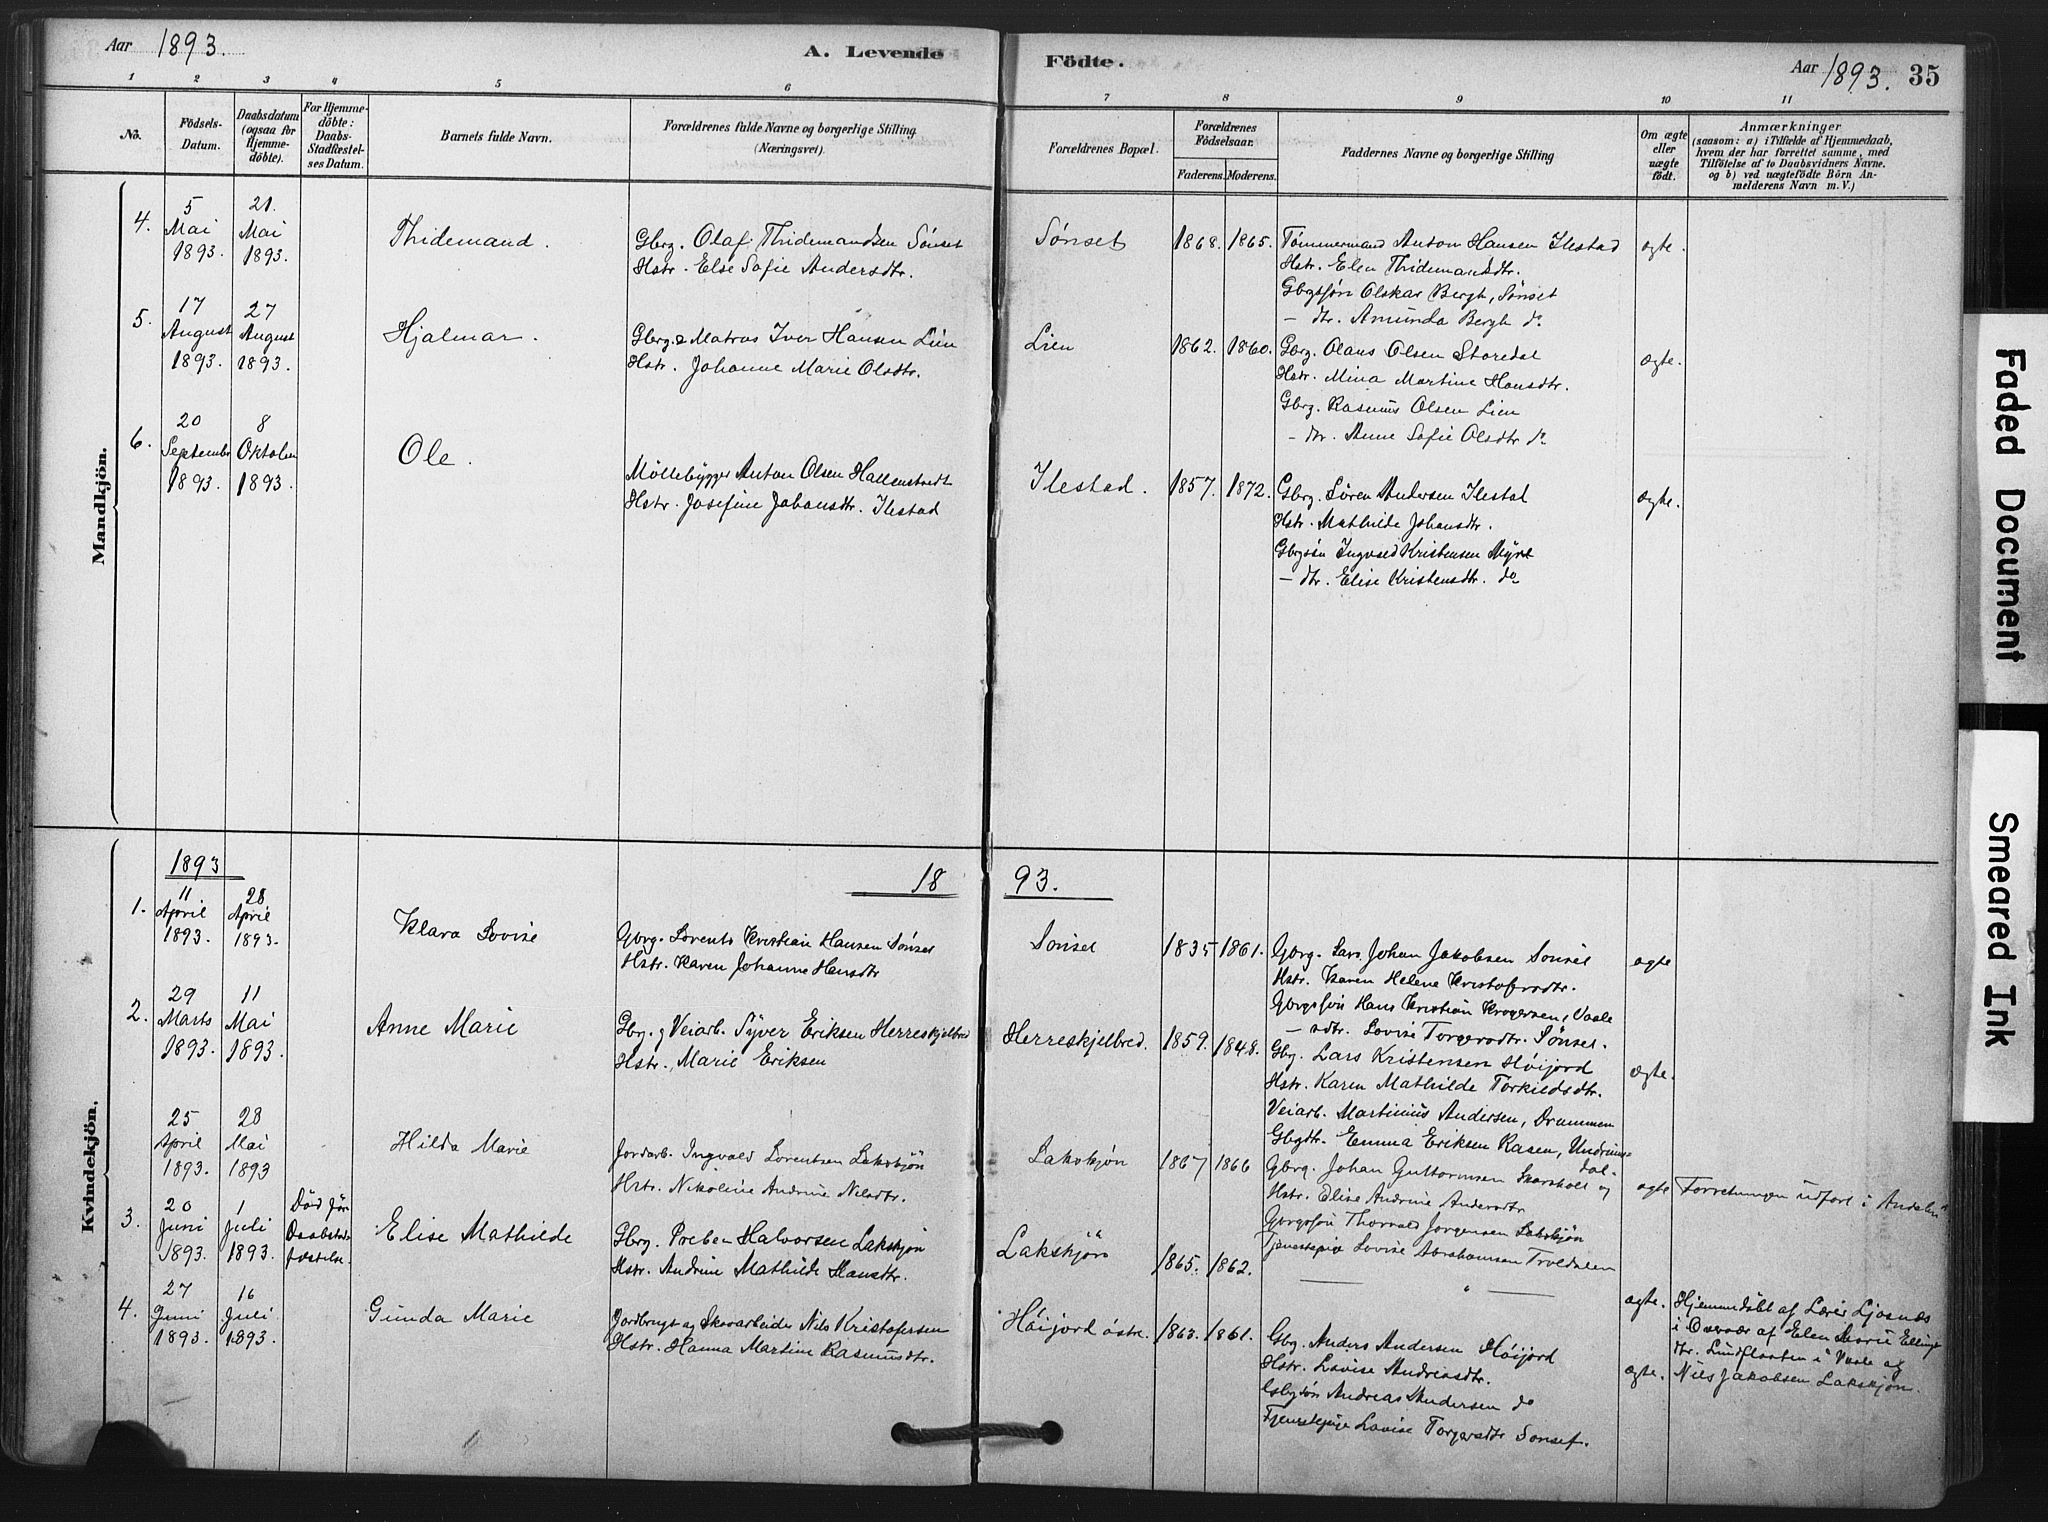 Aar 1893.
A. Levende Födte.
Aar 1893. 35
1 2 3 4 5 6 7 8 9 10 11
No.
Födsels-Datum.
Daabsdatum (ogsaa for Hjemmedöbte).
For Hjemmedöbte: Daabs-Stadfæstelses Datum.
Barnets fulde Navn.
Forældrenes fulde Navne og borgerlige Stilling (Næringsvei).
Forældrenes Bopæl.
Forældrenes Födselsaar.
Faderens. Moderens.
Faddernes Navne og borgerlige Stilling
Om ægte eller uægte födt.
Anmærkninger
(saasom: a) i Tilfælde af Hjemmedaab,
hvem der har forrettet samme, med
Tilföielse af to Daabsvidners Navne.
og b) ved uægtefödte Börn An-
melderens Navn m. V.)
Mandkjön.
4. 5 Mai 1893. 21. Mai 1893.
Thidemand.
Gbrg. Olaf Thidemandsen Sønset
Hstr. Else Sofie Andersdtr.
Sønset 1868. 1865.
Tømmermand Anton Hansen Ilestad
Hstr. Elen Thidemandsdtr.
Gbrgssøn Olskar Bergh, Sønset
— dtr. Amunda Bergh do
ægte.
5. 17 August 1893. 27 August 1893.
Hjalmar.
Gbrg. & Matros Iver Hansen Lien
Hstr. Johanne Marie Olsdtr.
Lien 1862. 1860.
Gbrg. Olaus Olsen Storedal
Hstr. Mina Martine Hansdtr.
Gbrg. Rasmus Olsen Lien
— dtr. Anne Sofie Olsdtr do
ægte.
6. 20 September 1893. 8 Oktober 1893.
Ole.
Møllebygger Anton Olsen Hallenstvedt
Hstr. Josefine Johansdtr. Ilestad
Ilestad. 1857. 1872.
Gbrg. Søren Andersen Ilestad
Hstr. Mathilde Johansdtr.
Gbrgsøn Ingvald Kristensen Myre
— dtr. Elise Kristensdtr. do
ægte.
Kvindekjön.
1893
18 93.
1. 11 April 1893. 28 April 1893.
Klara Lovise
Gbrg. Lorents Kristian Hansen Sønset
Hstr. Karen Johanne Hansdtr
Sønset 1835 1861.
Gbrg. Lars Johan Jakobsen Sønset
Hstr. Karen Helene Kristofersdtr.
Gbrgssøn Hans Kristian Krogersen, Vaale
— sdtr. Lovise Torgersdtr. Sønset.
ægte
2. 29 Marts 1893. 11 Mai 1893.
Anne Marie
Gbrg. og Veiarb. Syver Eriksen Herreskjelbred
Hstr., Marie Eriksen
Herreskjelbred. 1859. 1848.
Gbrg. Lars Kristensen Høijord
Hstr. Karen Mathilde Torkildsdtr.
Veiarb. Martinius Andersen, Drammen
Gbgdtr. Emma Eriksen Rasen, Undrums-
dal-
ægte.
25 April 1893. 28 Mai 1893
Hilda Marie
Jordarb. Ingvald Lorentsen Lakskjøn
Hstr. Nikoline Andrine Nilsdtr.
Lakskjøn 1867 1866
Gbrg. Johan Guttormsen Skarsholt og
Hstr. Elise Andrine Andersdtr
Gbrgssøn Thorvald Jorgensen Lakskjøn
Tjenestepige Lovise Abrahamsen Troldalen
ægte Forretningen udfort i Andebu
3. 20 Juni 1893. 1 Juli 1893.
Død før Daabstadfæstelse.
Elise Mathilde
Gbrg. Preben Halvorsen Lakskjøn
Hstr. Andrine Mathilde Hansdtr.
Lakskjøn 1865. 1862.
— " —
ægte. Hjemmedøbt af Lærer Ljosnæs
i Overvær af Elen Marie Ellings-
dtr. Lundflaaten i Vaale og
Nils Jakobsen Lakskjøn.
4. 27 Juni 1893. 16 Juli 1893.
Gunda Marie
Jordbrugr og Skovarbeider Nils Kristofersen
Hstr. Hanna Martine Rasmusdtr.
Høijord østre. 1863. 1861.
Gbg. Anders Andersen Høijord
Hstr. Lovise Andreasdtr.
Gbrgsøn Andreas Andersen do
Tjenestepige Lovise Torgersdtr Sønset.
ægte.
Faded Document
Smeared Ink